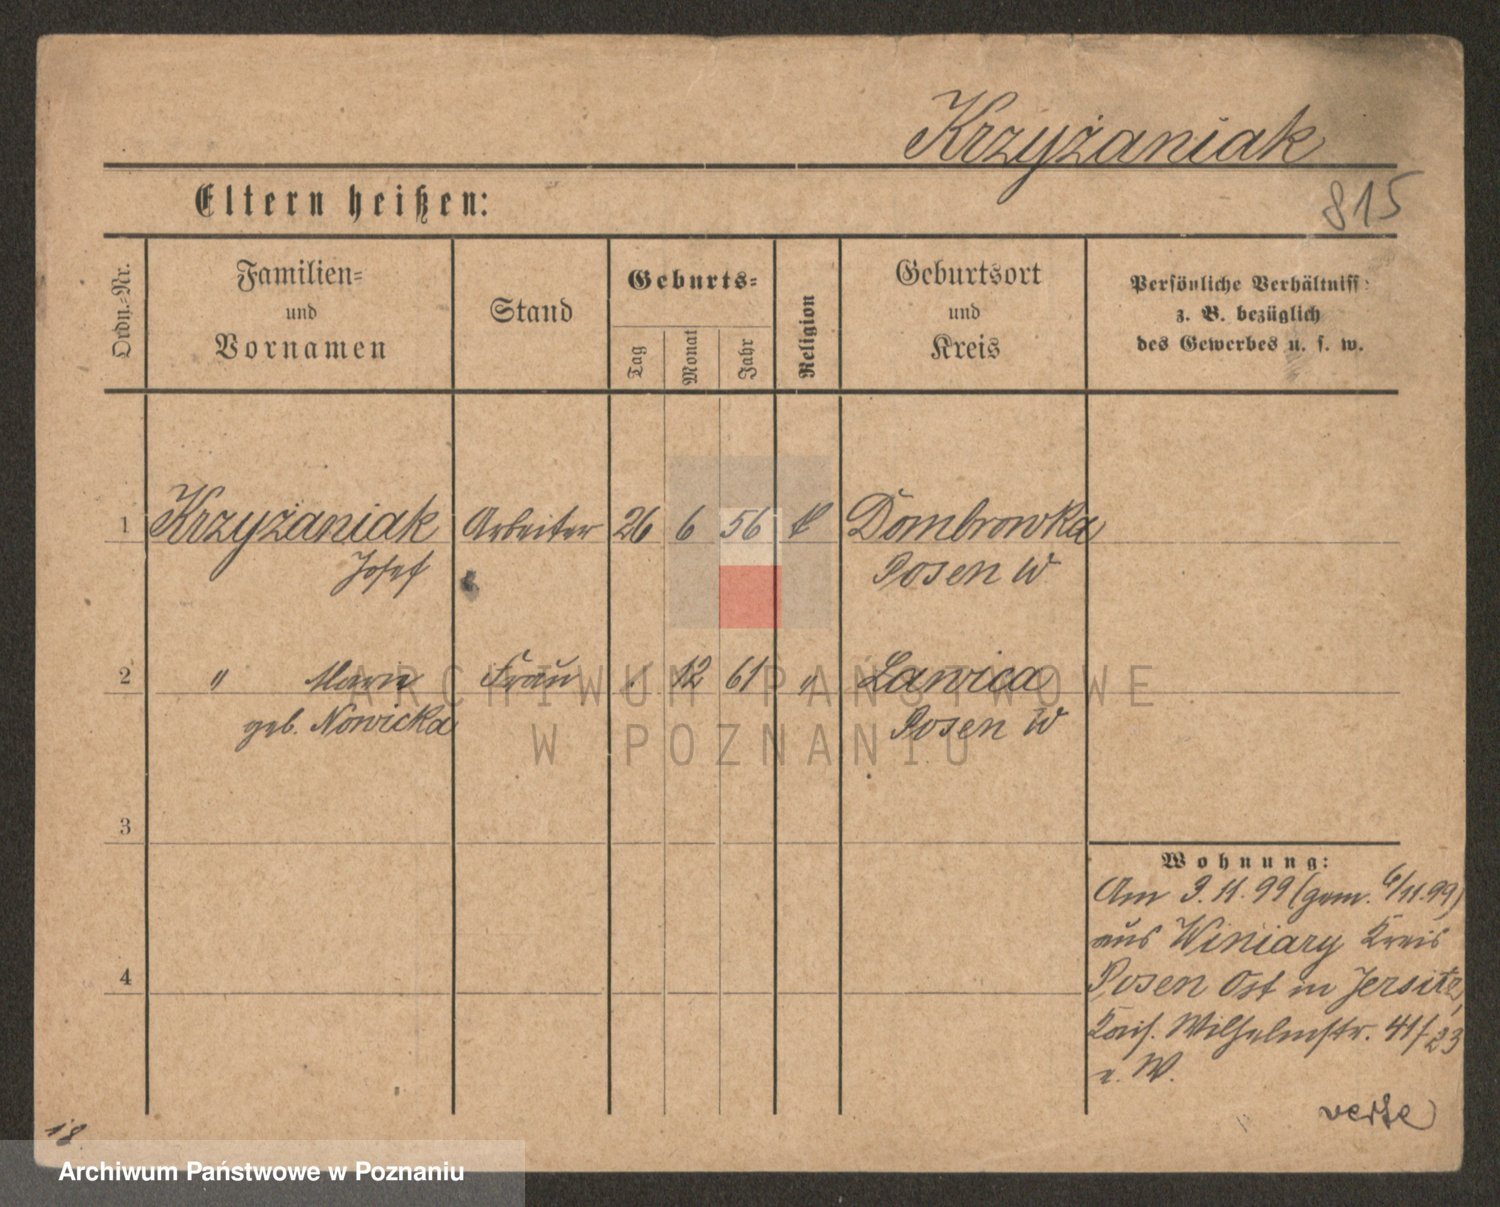 Krzyżaniak
815
Eltern heißen:
Ordn.-Nr.
Familien-
und
Vornamen
Stand
Geburts-
Tag
Monat
Jahr
Religion
Geburtsort
und
Kreis
Persönliche Verhältniss
z. B. bezüglich
des Gewerbes u. s. w.
1 Krzyżaniak Arbeiter 26 6 56 k Dombrowka
Josef Posen W
2 " Marie Frau 12 61 " Lawica
geb. Nowicka Posen W
3
Wohnung:
Am 3. 11. 99 (gem. 6/11.99)
aus Winiary Kreis
4
Posen Ost in Jersitz,
Kais. Wilhelmstr. 41/23
W.
verte
18
ARCHIWUM PAŃSTWOWE
W POZNANIU
Archiwum Państwowe w Poznaniu